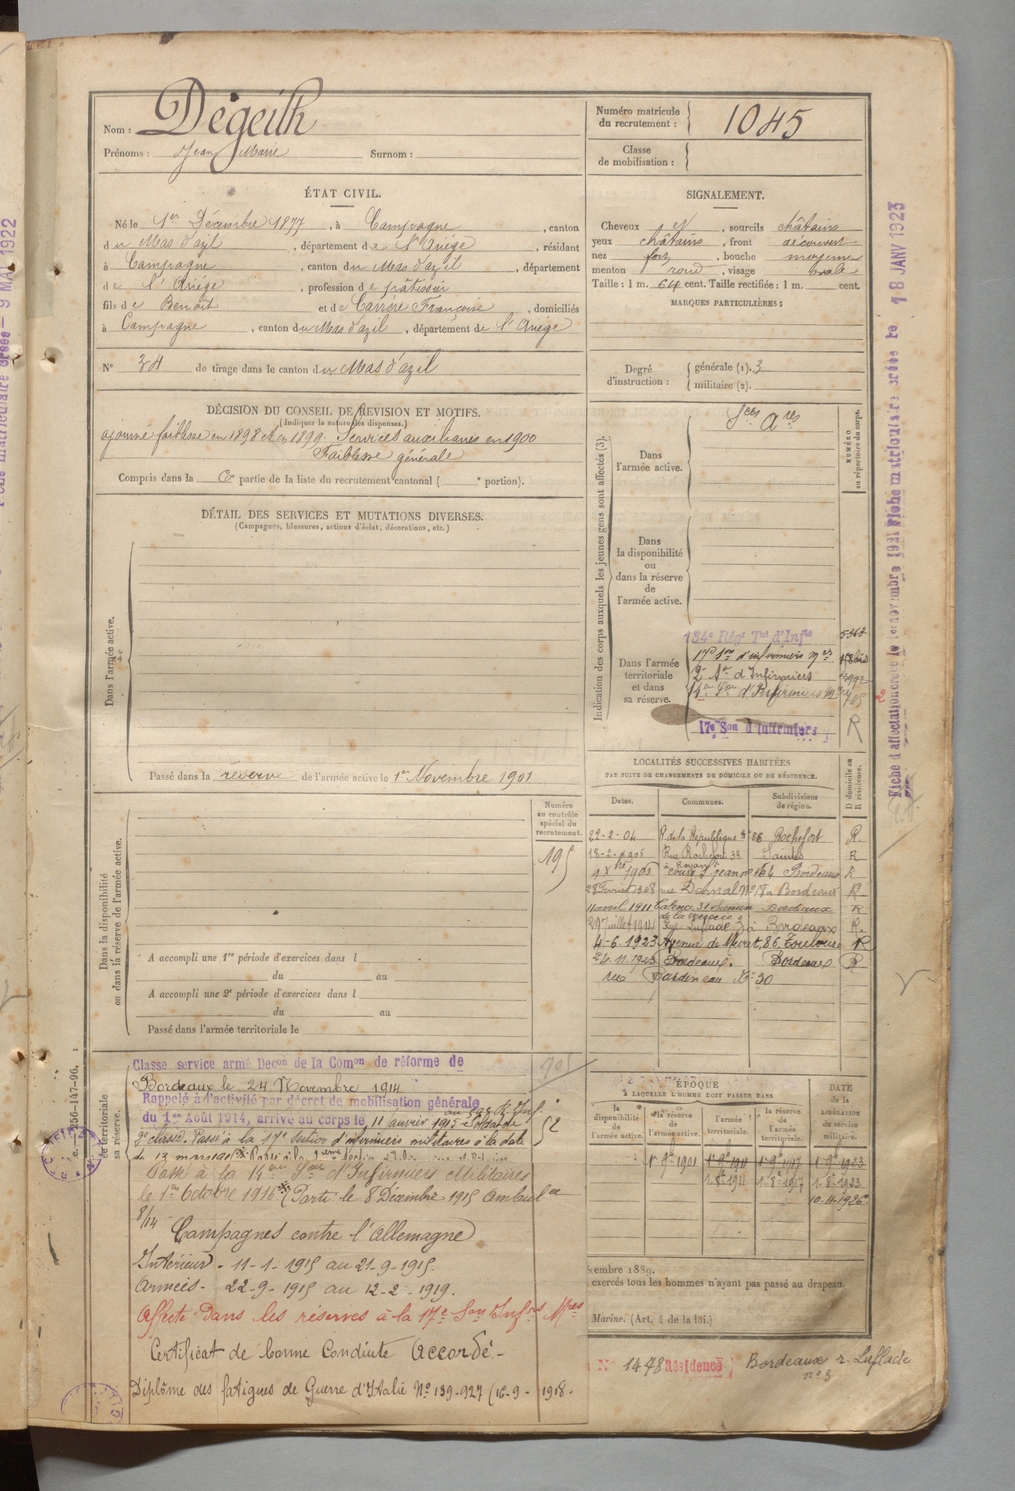 Nom : Dégeilh
Prénoms : Jean Marie Surnom :
Numéro matricule du recrutement : 1045
Classe de mobilisation :
ÉTAT CIVIL.
Né le 1er Décembre 1877, à Campagne, canton
du Mas d'azil, département de l'Ariège, résidant
à Campagne, canton du Mas d'azil, département
de l'Ariège, profession de pâtissier
fils de Benoit et de Carrère Françoise, domiciliés
à Campagne, canton du Mas d'azil, département de l'Ariège
N° 34 de tirage dans le canton du Mas d'azil
SIGNALEMENT.
Cheveux N, sourcils châtains
yeux châtains, front découvert
nez fort, bouche moyenne
menton rond, visage ovale
Taille : 1 m. 64 cent. Taille rectifiée : 1 m. cent.
MARQUES PARTICULIÈRES :
Degré d'instruction : générale (1). 3
militaire (2).
DÉCISION DU CONSEIL DE REVISION ET MOTIFS.
(Indiquer la nature des dispenses.)
ajourné faiblesse en 1898 et en 1899. Services auxiliaires en 1900
Faiblesse générale
Compris dans la partie de la liste du recrutement cantonal ( e portion).
DÉTAIL DES SERVICES ET MUTATIONS DIVERSES.
(Campagnes, blessures, actions d'éclat, décorations, etc.)
Dans l'armée active.
Passé dans la réserve de l'armée active le 1er Novembre 1901
Indication des corps auxquels les jeunes gens sont affectés (3).
NUMÉRO au répertoire du corps.
Sces Ares
Dans l'armée active.
Dans la disponibilité ou dans la réserve de l'armée active.
Dans l'armée territoriale et dans sa réserve.
134e Régt Tal d'Infie
17e Son d'infirmiers Mres
2e Son d'Infirmiers
14e Son d'Infirmiers Mres
705
17e Son d'Infirmiers
R
Dans la disponibilité ou dans la réserve de l'armée active.
Numéro au contrôle spécial du recrutement.
195
A accompli une 1re période d'exercices dans l
du au
A accompli une 2e période d'exercices dans l
du au
Passé dans l'armée territoriale le
LOCALITÉS SUCCESSIVES HABITÉES
PAR SUITE DE CHANGEMENTS DE DOMICILE OU DE RÉSIDENCE.
Dates. Communes. Subdivisions de région. D domicile ou R résidence.
22-2-04 R de la République 86 Rochefort R.
18-2-1906 Rue Rochefort 33 Saintes R
à Royan
1 Xbre 1906 cours St Jean n° 164 Bordeaux R
28 Février 1908 rue Darnal N° 18 Bordeaux R
11 avril 1911 Talence 31 chemin Bordeaux R
29 juillet 1914 Rue Luflade 3 à Bordeaux R.
4-6-1923 Avenue de Muret, 86 Toulouse R
24-11-1923 Bordeaux. Bordeaux R
rue Sardineau N° 30
territoriale sa réserve.
Classe service armé Decon de la Comon de réforme de
Bordeaux le 24 Novembre 1914
Rappelé à l'activité par décret de mobilisation générale
du 1er Août 1914, arrivé au corps le 11 janvier 1915 Soldat de
2e classe. Passé à la 17e Section d'infirmiers militaires à la date
Passé à la 14e Son d'Infirmiers Militaires
le 1er Octobre 1916 (Parti le 8 Décembre 1915 Ambulce
8/14
Campagnes contre l'Allemagne
Intérieur - 11-1-1915 au 21-9-1915.
Armées - 22-9-1915 au 12-2-1919.
Affecté dans les réserves à la 17e Son Infirs Mres
Certificat de bonne Conduite Accordé.-
Diplôme des fatigues de Guerre d'Italie N° 139-927 (16-9-1918.
52
ÉPOQUE À LAQUELLE L'HOMME DOIT PASSER DANS
la disponibilité de l'armée active. la réserve de l'armée active. l'armée territoriale. la réserve de l'armée territoriale.
DATE DE LA LIBÉRATION du service militaire.
1 9bre 1901 1 9bre 1911 1 9bre 1917 1 9bre 1923
1-8bre 1911 1-8bre 1917 1-8bre 1923
10-11-1926
cembre 1889.
exercés tous les hommes n'ayant pas passé au drapeau.
Marine. (Art. 4 de la loi.)
N° 1478 Résidence Bordeaux r. Luflade
n° 3
Fiche d'affectation
Fiche matriculaire créée le 18 JANV 1923
créée – 9 MAI 1922
256-147-96.